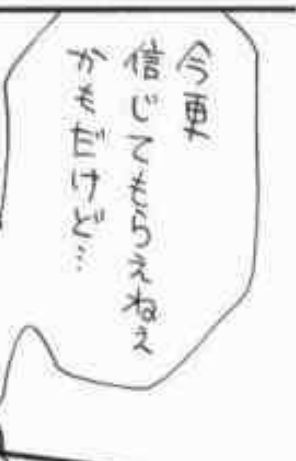 今更
信じてもらえねえ
かもだけど…